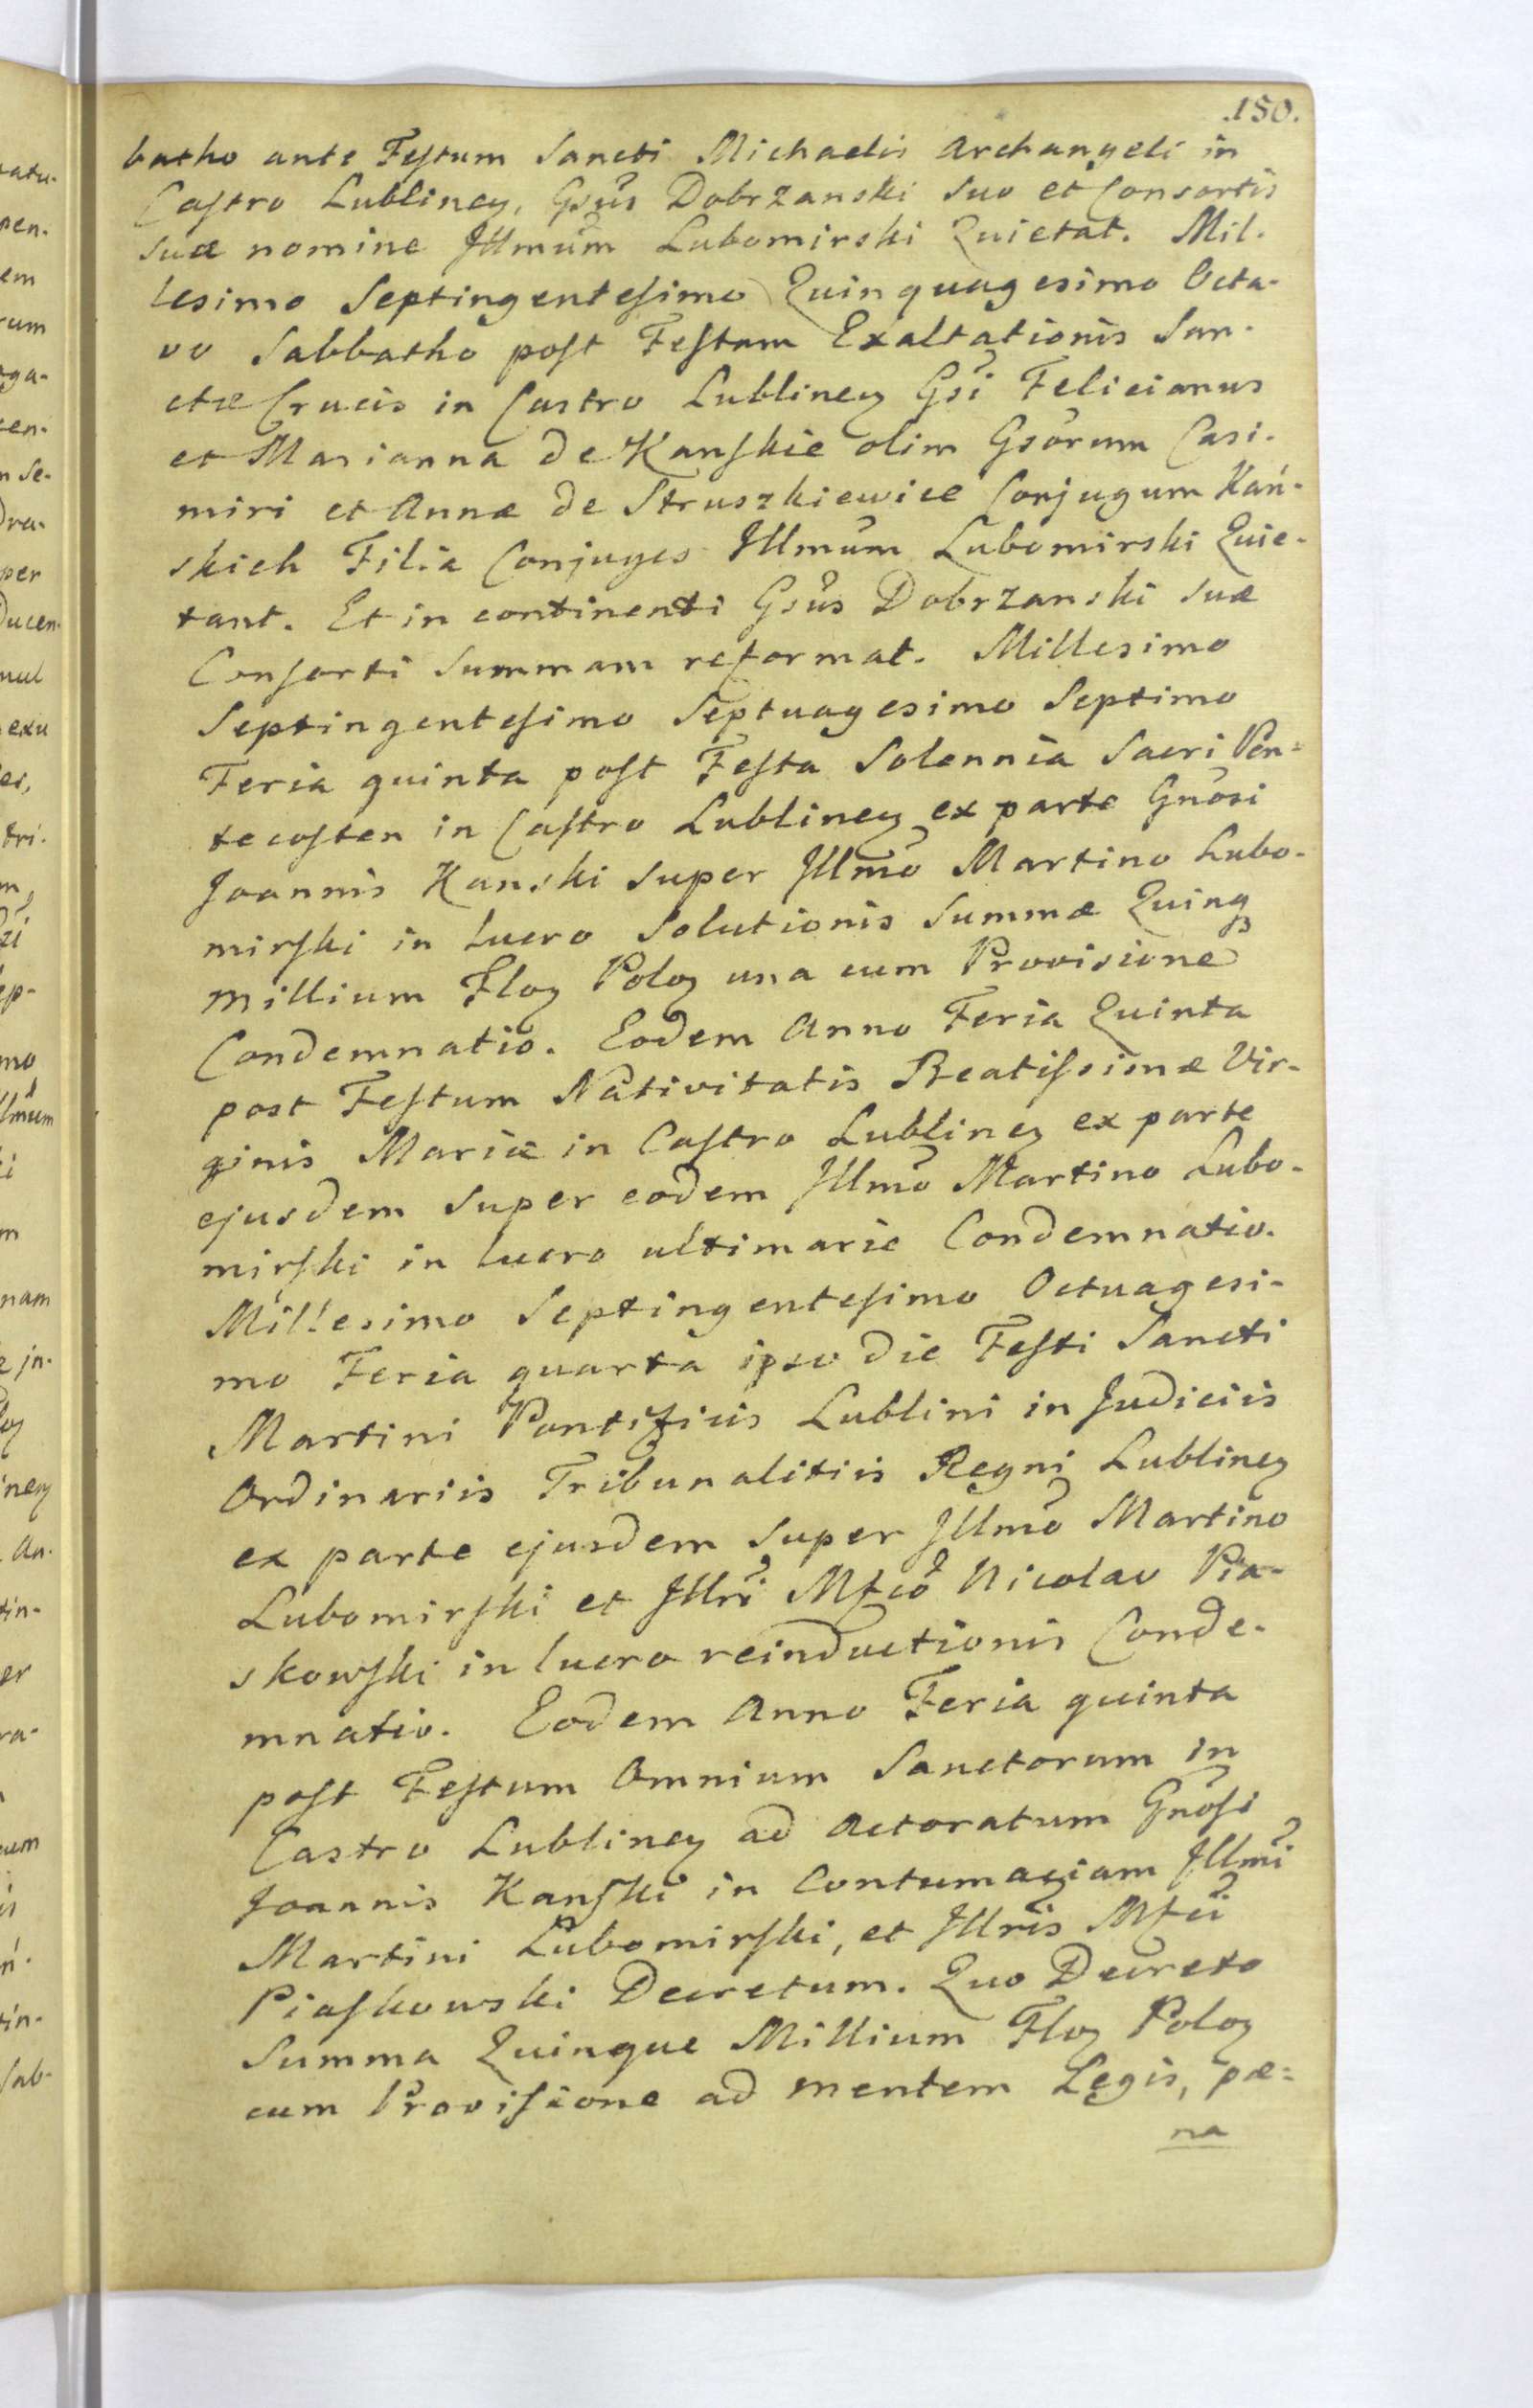 .150.
batho ante Festum Sancti Michaelis Archangeli in
Castro Lublineꝫ, Gsũs Dobrzanski suo et Consortis
suæ nomine Jllmũm Lubomirski Quietat. Mil-
lesimo Septingentesimo Quinquagesimo Octa-
vo Sabbatho post Festum Exaltationis San-
ctæ Crucis in Castro Lublineꝫ Gsĩ Felicianus
et Marianna de Kanskie olim Gsõrum Casi-
miri et Annæ de Struszkiewice Conjugum Kań-
skich Filia Conjuges Jllmũm Lubomirski Quie-
tant. Et in continenti Gsũs Dobrzanski suæ
Consorti Summam reformat. Millesimo
Septingentesimo Septuagesimo Septimo
Feria quinta post Festa Solennia Sacri Pen=
tecosten in Castro Lublineꝫ ex parte Gnõsi
Joannis Kanski super Jllmõ Martino Lubo-
mirski in lucro Solutionis Summæ Quinqꝫ
Millium Floꝫ Poloꝫ una cum Provisione
Condemnatio. Eodem Anno Feria Quinta
post Festum Nativitatis Beatissimæ Vir-
ginis Mariæ in Castro Lublineꝫ ex parte
ejusdem super eodem Jllmõ Martino Lubo-
mirski in lucro ultimarie Condemnatio.
Millesimo Septingentesimo Octuagesi-
mo Feria quarta ipso die Festi Sancti
Martini Pontificis Lublini in Judiciis
Ordinariis Tribunalitiis Regni Lublineꝫ
ex parte ejusdem super Jllmõ Martino
Lubomirski et Jllrĩ Mfcõ Nicolao Pia-
skowski in lucro reinductionis Conde-
mnatio. Eodem Anno Feria quinta
post Festum Omnium Sanctorum in
Castro Lublineꝫ ad Actoratum Gnõsi
Joannis Kanski in Contumaciam Jllmĩ
Martini Lubomirski, et Jllrĩs Mfcĩ
Piaskowski Decretum. Quo Decreto
Summa Quinque Millium Floꝫ Poloꝫ
cum Provisione ad mentem Legis, pæ=
na